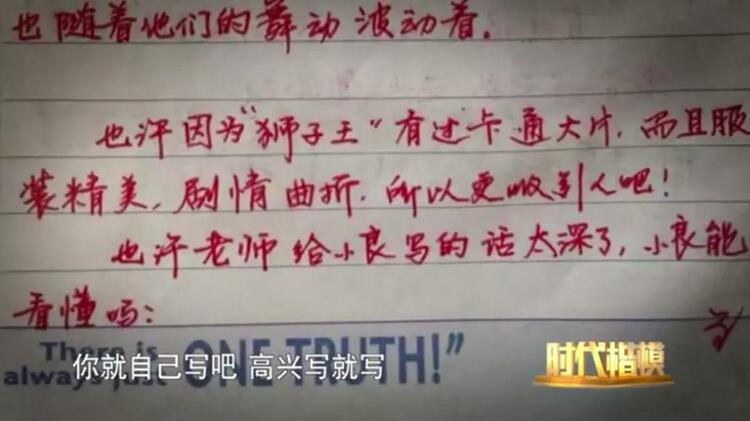 也随着他们的舞动波动着.
也许因为"狮子王"有过卡通大片,而且服
装精美,剧情曲折,所以更吸引人吧!
也许老师给小良写的话太深了,小良能
看懂吗:
There is
always just ONE TRUTH!"
你就自己写吧 高兴写就写
时代楷模